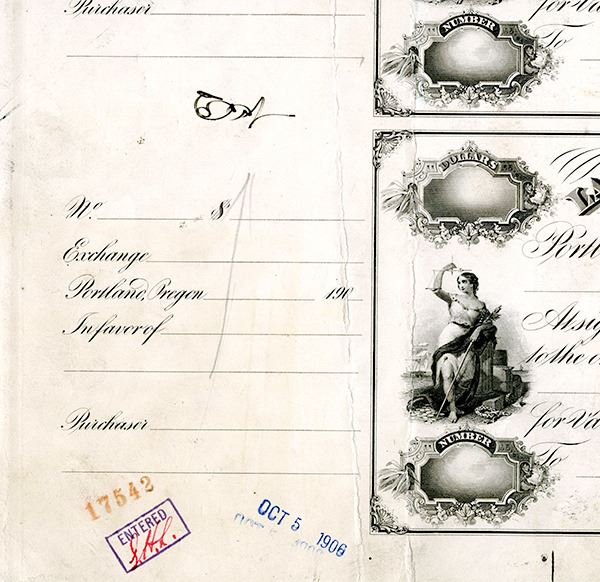 Purchaser
NUMBER
for Va
To
DOLLARS
LA
No. $
Exchange
Portl
Portland, Oregon 190
In favor of
At sig
to the o
Purchaser
for Va
NUMBER
To
17542
ENTERED
OCT 5 1906